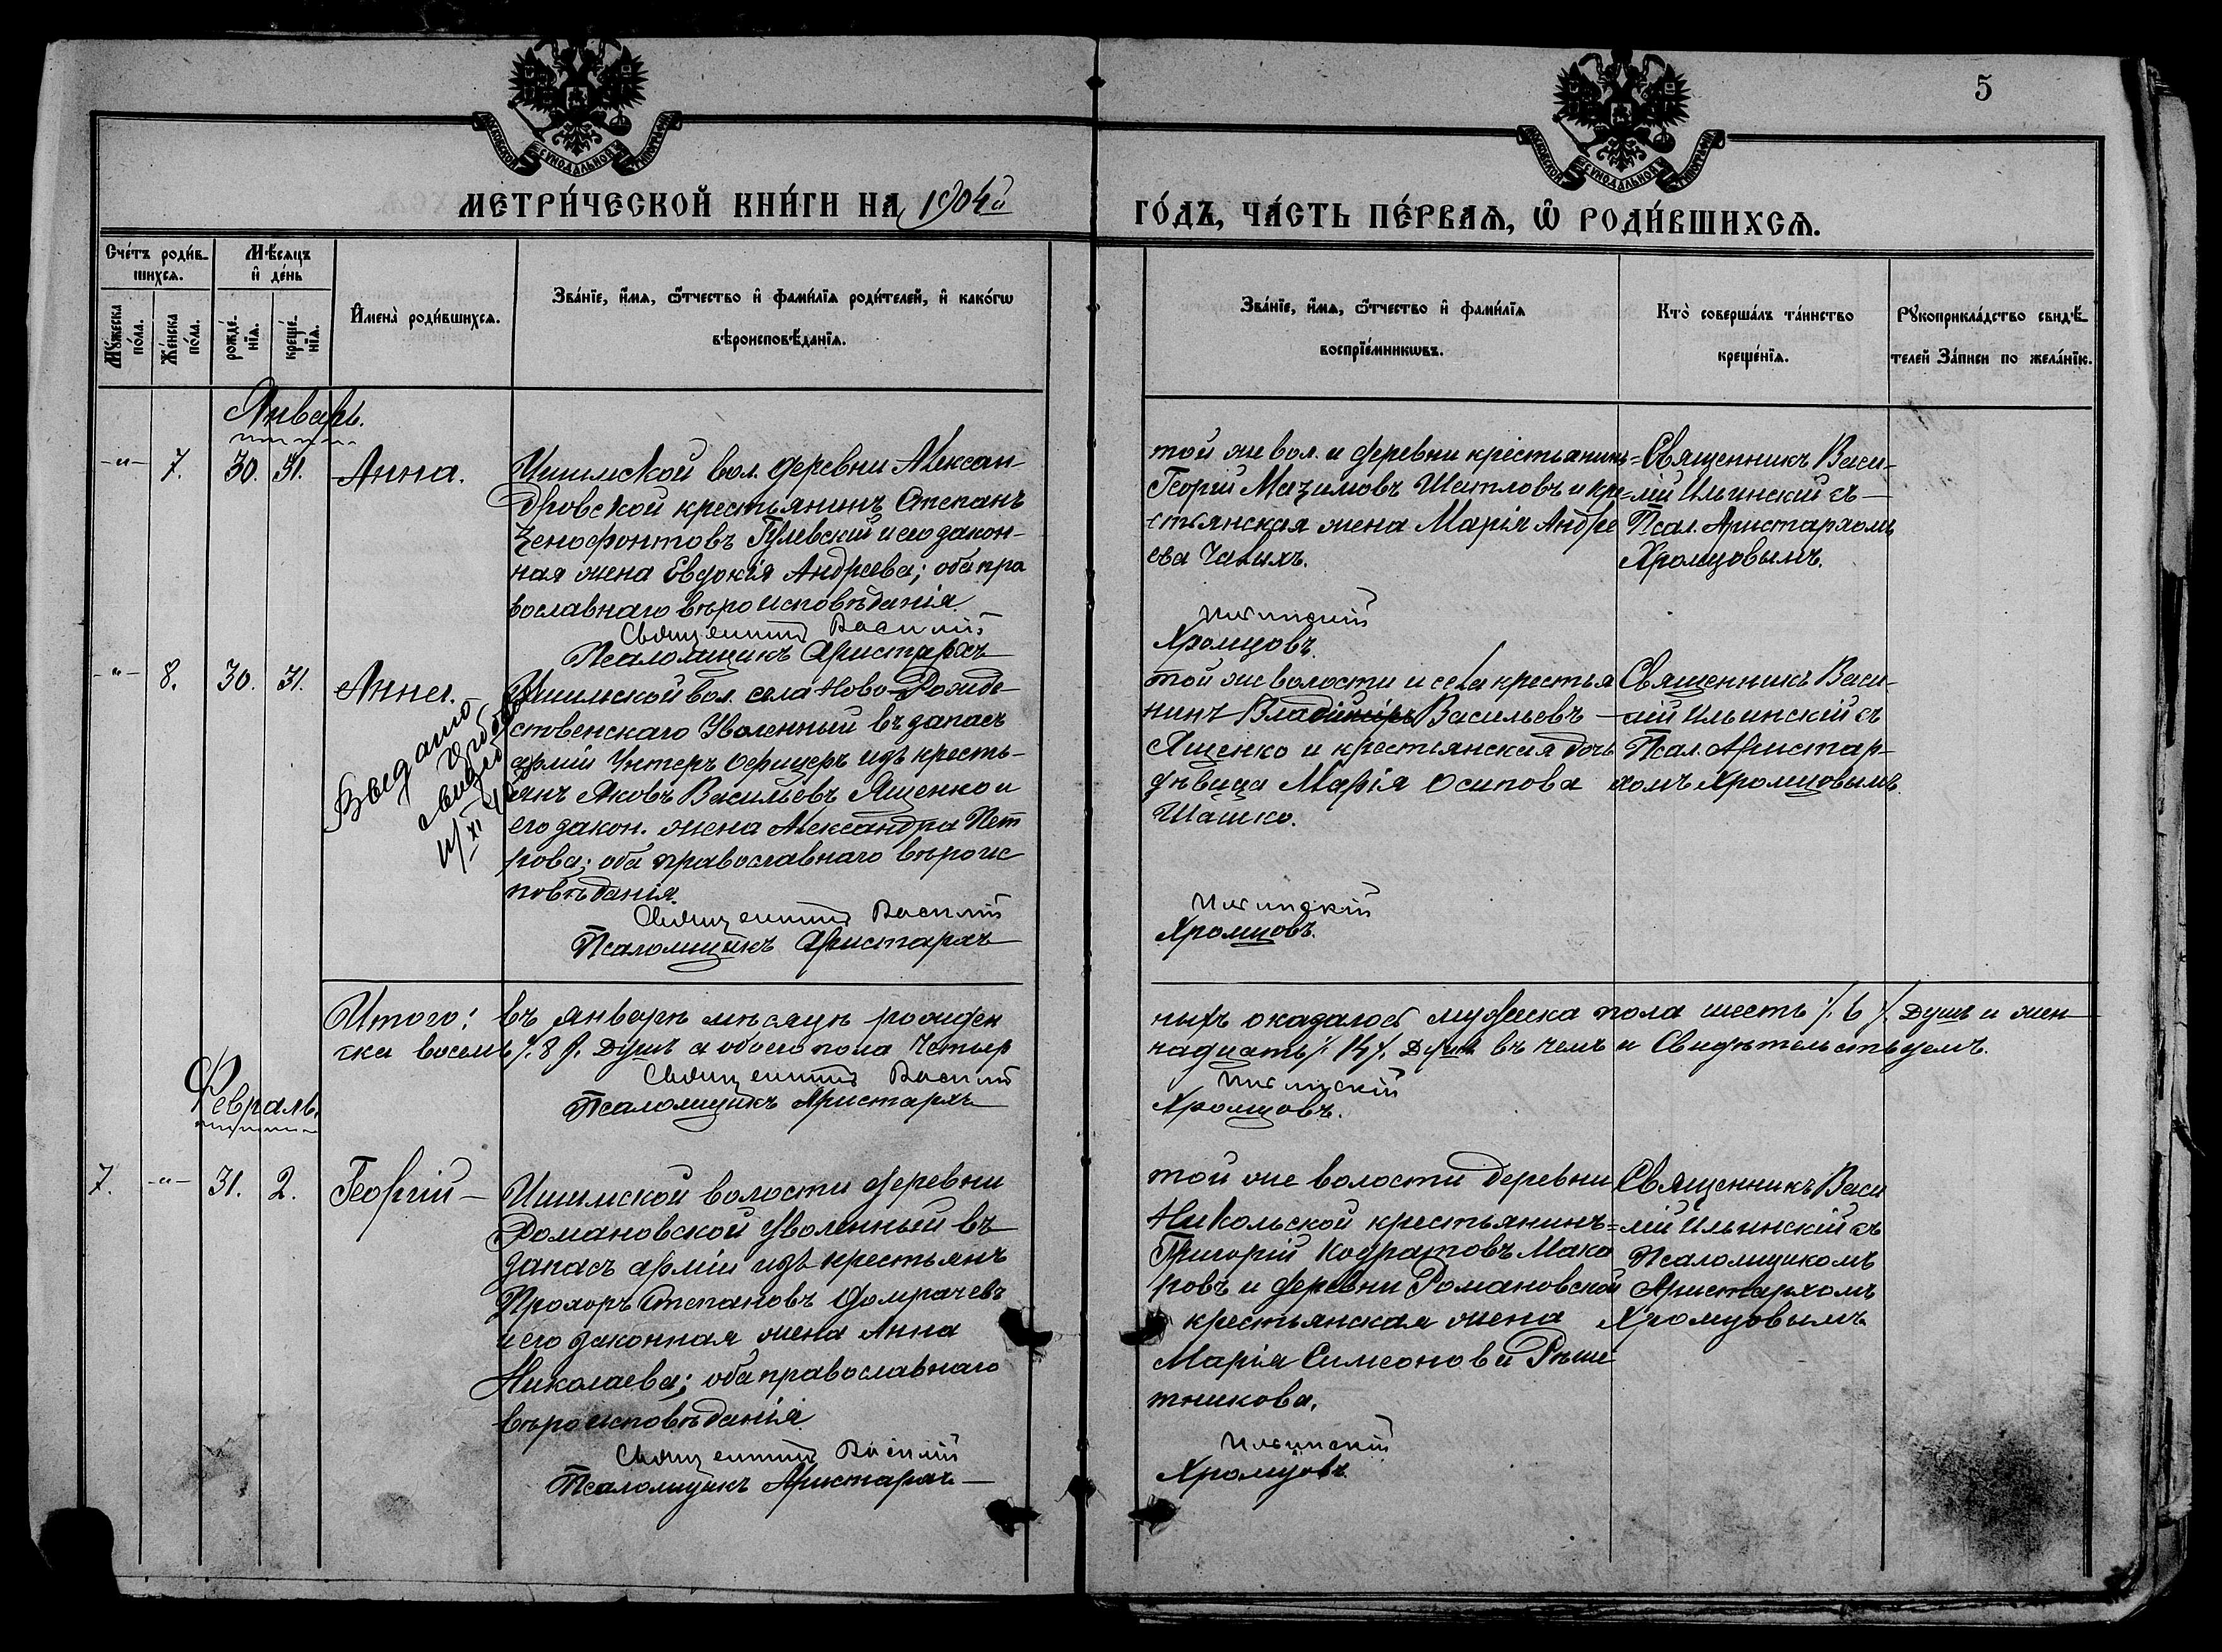 5
МОСКОВСКОЙ СѴНОДАЛЬНОЙ ТИПОГРАФІИ
МОСКОВСКОЙ СѴНОДАЛЬНОЙ ТИПОГРАФІИ
МЕТРИ́ЧЕСКОЙ КНИ́ГИ НА 1904й
ГО́ДЪ, ЧА́СТЬ ПЕ́РВАѦ, Ѡ҆ РОДИ́ВШИХСѦ.
Сче́тъ роди́в-
шихсѧ.
Мꙋ́жеска по́ла.
Же́нска по́ла.
Мѣ́сѧцъ
и҆ де́нь
рожде́нїѧ.
креще́нїѧ.
И҆мена̀ роди́вшихсѧ.
Зва́нїе, и҆́мѧ, ѻ҆́тчество и҆ фами́лїѧ роди́телей, и҆ како́гѡ
вѣроисповѣ́данїѧ.
Зва́нїе, и҆́мѧ, ѻ҆́тчество и҆ фами́лїѧ
воспрїе́мникѡвъ.
Кто̀ соверша́лъ та́инство
креще́нїѧ.
Рꙋкоприкла́дство свидѣ́-
телей за́писи по жела́нїю.
Январь.
-"- 7. 30. 31. Анна.
Ишимской вол. деревни Алексан-
дровской крестьянинъ Степанъ
Ксенофонтовъ Гулевскій и его закон-
ная жена Евдокія Андреева; оба пра
вославнаго вѣроисповѣданія.
Священникъ Василій
Псаломщикъ Аристархъ
той же вол. и деревни крестьянинъ
Георгій Мазимовъ Шатловъ и кре=
стьянская жена Марія Андре
ева
Ильинскій
Хромцовъ.
Священникъ Васи-
лій Ильинскій съ
Псал. Аристархомъ
Хромцовымъ.
-"- 8. 30. 31. Анна.
Выдано
11/XI
Ишимской вол. села Ново-Рожде-
ственскаго Уволенный въ запасъ
арміи Унтеръ Офицеръ изъ кресть-
янъ Яковъ Васильевъ Ященко и
его закон. жена Александра Пет
рова; оба православнаго вѣроис
повѣданія.
Священникъ Василій
Псаломщикъ Аристархъ
той же волости и села крестья
нинъ Владиміръ Васильевъ
Ященко и крестьянская дочь
дѣвица Марія Осипова
Шашко.
Ильинскій
Хромцовъ.
Священникъ Васи-
лій Ильинскій съ
Псал. Аристар-
хомъ Хромцовымъ.
Итого: въ январѣ мѣсяцѣ рожден
ныхъ оказалось мужеска пола шесть /. 6 /. душъ и жен-
ска восемь /. 8 /. душъ а обоего пола четыр
надцать /. 14 /. душъ въ чемъ и Свидѣтельствуемъ.
Священникъ Василій
Псаломщикъ Аристархъ
Ильинскій
Хромцовъ.
Февраль.
7. -"- 31. 2. Георгій
Ишимской волости деревни
Романовской уволенный въ
запасъ арміи изъ крестьянъ
Прохоръ Степановъ Домрачевъ
и его законная жена Анна
Николаева; оба православнаго
вѣроисповѣданія.
Священникъ Василій
Псаломщикъ Аристархъ
той же волости деревни
Никольской крестьянинъ
Григорій Кодратовъ Мака
ровъ и деревни Романовской
крестьянская жена
Марія Симеонова Рѣше
тникова.
Ильинскій
Хромцовъ
Священникъ Васи
лій Ильинскій съ
Псаломщикомъ
Аристархомъ
Хромцовымъ